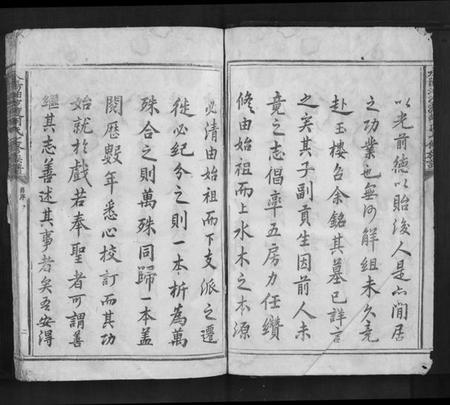 以光前德以貽後人是亦閒居
之功業也無何解組未久竟
赴玉樓召余銘其墓已詳言
之矣其子副貢生因前人未
竟之志倡率五房力任纘
修由始祖而上水木之本源
必清由始祖而下支派之遷
徙必紀分之則一本析為萬
殊合之則萬殊同歸一本蓋
閱歷數年悉心校訂而其功
始就於戲若奉聖者可謂善
繼其志善述其事者矣吾安得